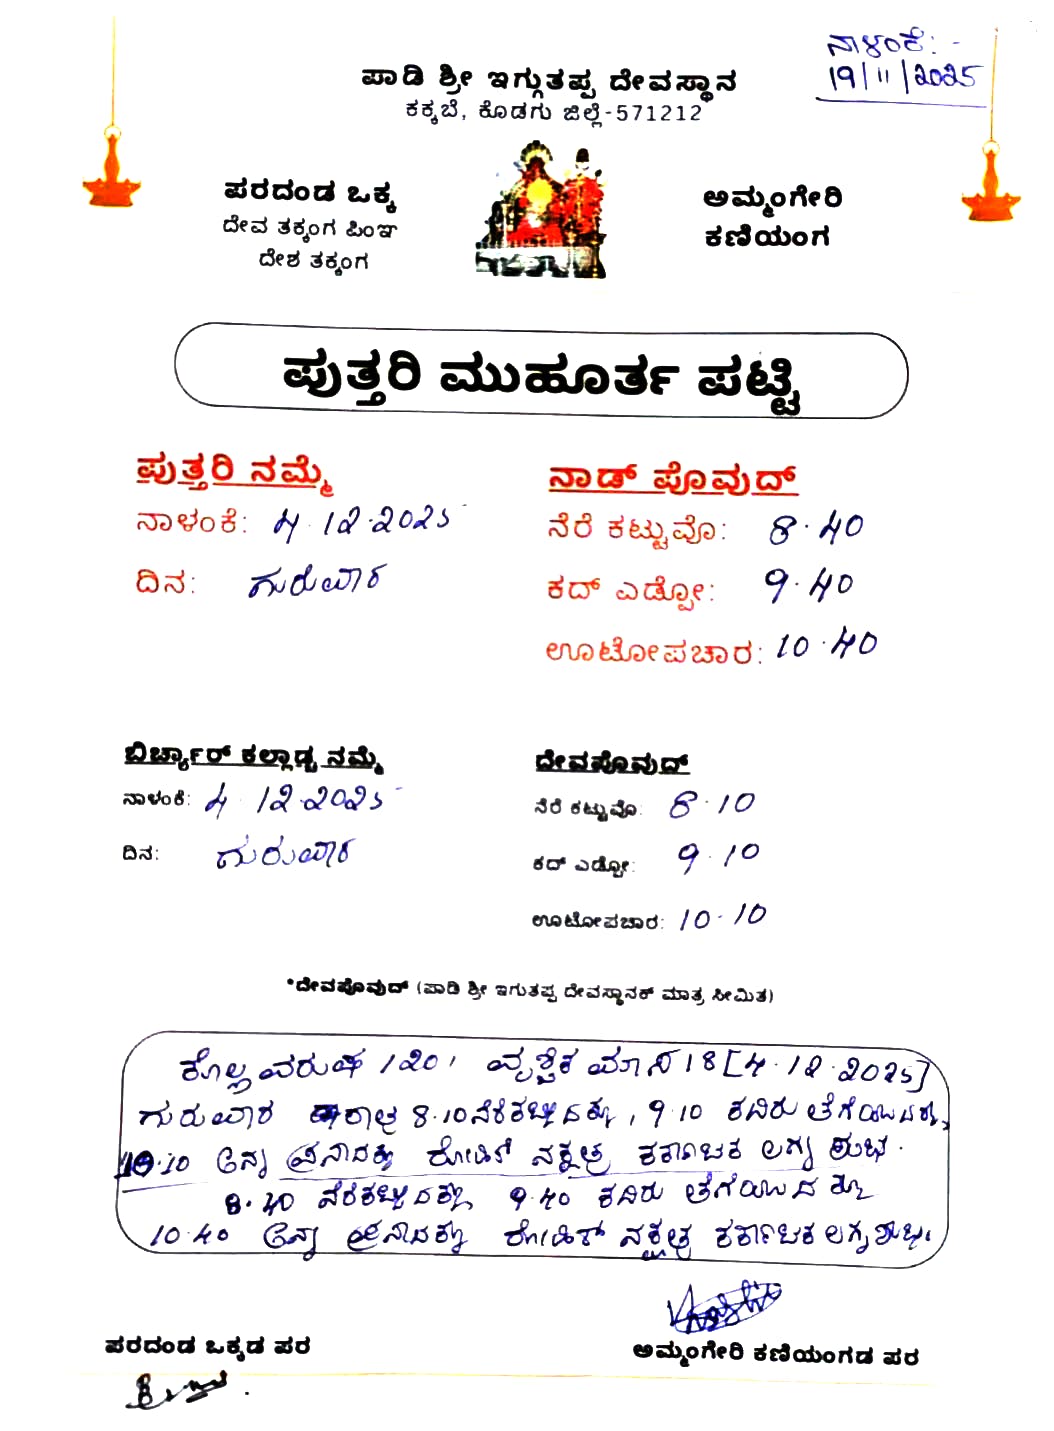 ನಾಳಂಕೆ: -
19/11/2025
ಪಾಡಿ ಶ್ರೀ ಇಗ್ಗುತಪ್ಪ ದೇವಸ್ಥಾನ
ಕಕ್ಕಬೆ, ಕೊಡಗು ಜಿಲ್ಲೆ-571212
ಪರದಂಡ ಒಕ್ಕ
ದೇವ ತಕ್ಕಂಗ ಪಿಂಞ
ದೇಶ ತಕ್ಕಂಗ
ಅಮ್ಮಂಗೇರಿ
ಕಣಿಯಂಗ
ಪುತ್ತರಿ ಮುಹೂರ್ತ ಪಟ್ಟಿ
ಪುತ್ತರಿ ನಮ್ಮೆ
ನಾಳಂಕೆ: 4.12.2025
ದಿನ: ಗುರುವಾರ
ನಾಡ್ ಪೊವುದ್
ನೆರೆ ಕಟ್ಟುವೊ: 8.40
ಕದ್ ಎಡ್ಪೋ: 9.40
ಊಟೋಪಚಾರ: 10.40
ಬಿರ್ಚ್ಯಾರ್ ಕಲ್ಲಾಡ್ಚ ನಮ್ಮೆ
ನಾಳಂಕೆ: 4.12.2025
ದಿನ: ಗುರುವಾರ
ದೇವಪೊವುದ್
ನೆರೆ ಕಟ್ಟುವೊ: 8.10
ಕದ್ ಎಡ್ಪೋ: 9.10
ಊಟೋಪಚಾರ: 10.10
*ದೇವಪೊವುದ್ (ಪಾಡಿ ಶ್ರೀ ಇಗುತಪ್ಪ ದೇವಸ್ಥಾನಕ್ ಮಾತ್ರ ಸೀಮಿತ)
ಕೊಲ್ಲವರುಷ 1201 ವೃಶ್ಚಿಕ ಮಾಸ 18 [4.12.2025]
ಗುರುವಾರ ರಾತ್ರಿ 8.10 ನೆರೆಕಟ್ಟುವದಕ್ಕು, 9.10 ಕದಿರು ತೆಗೆಯುವದಕ್ಕು,
10.10 ಅನ್ನ ಪ್ರಸಾದಕ್ಕು ರೋಹಿಣಿ ನಕ್ಷತ್ರ ಕರ್ಕಾಟಕ ಲಗ್ನ ಶುಭ.
8.40 ನೆರೆಕಟ್ಟುವದಕ್ಕು 9.40 ಕದಿರು ತೆಗೆಯುವದಕ್ಕು
10.40 ಅನ್ನ ಪ್ರಸಾದಕ್ಕು ರೋಹಿಣಿ ನಕ್ಷತ್ರ ಕರ್ಕಾಟಕ ಲಗ್ನ ಶುಭ.
ಪರದಂಡ ಒಕ್ಕಡ ಪರ
ಅಮ್ಮಂಗೇರಿ ಕಣಿಯಂಗಡ ಪರ